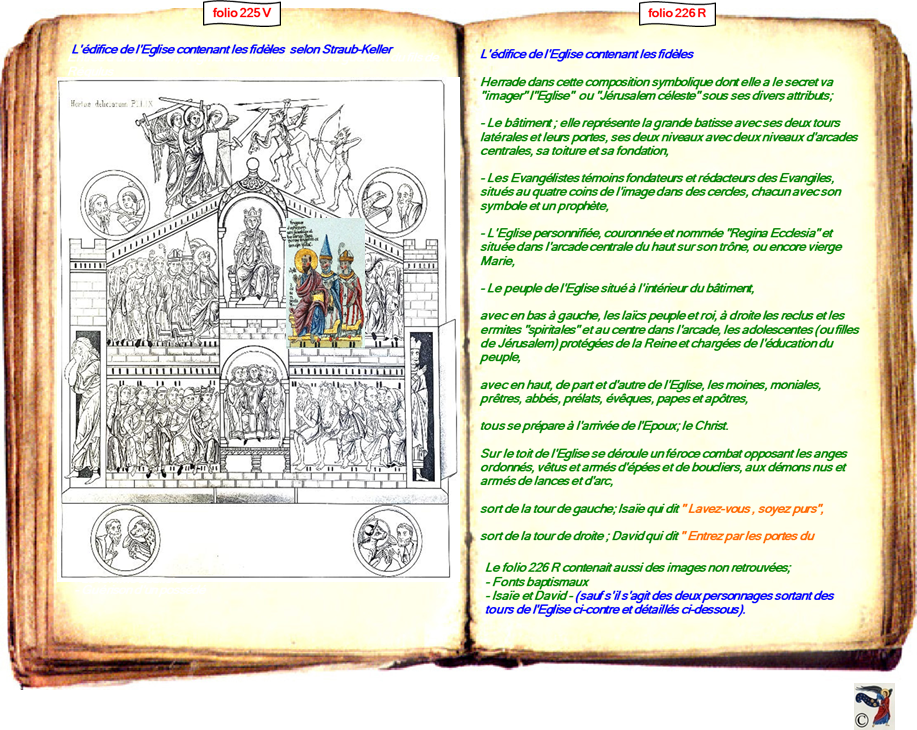 folio 225 V
L'édifice de l'Eglise contenant les fidèles selon Straub-Keller
folio 226 R
L'édifice de l'Eglise contenant les fidèles
Herrade dans cette composition symbolique dont elle a le secret va
"imager" l"Eglise" ou "Jérusalem céleste" sous ses divers attributs;
- Le bâtiment ; elle représente la grande batisse avec ses deux tours
latérales et leurs portes, ses deux niveaux avec deux niveaux d'arcades
centrales, sa toiture et sa fondation,
- Les Evangélistes témoins fondateurs et rédacteurs des Evangiles,
situés au quatre coins de l'image dans des cercles, chacun avec son
symbole et un prophète,
- L'Eglise personnifiée, couronnée et nommée "Regina Ecclesia" et
située dans l'arcade centrale du haut sur son trône, ou encore vierge
Marie,
- Le peuple de l'Eglise situé à l'intérieur du bâtiment,
avec en bas à gauche, les laïcs peuple et roi, à droite les reclus et les
ermites "spiritales" et au centre dans l'arcade, les adolescentes (ou filles
de Jérusalem) protégées de la Reine et chargées de l'éducation du
peuple,
avec en haut, de part et d'autre de l'Eglise, les moines, moniales,
prêtres, abbés, prélats, évêques, papes et apôtres,
tous se prépare à l'arrivée de l'Epoux; le Christ.
Sur le toit de l'Eglise se déroule un féroce combat opposant les anges
ordonnés, vêtus et armés d'épées et de boucliers, aux démons nus et
armés de lances et d'arc,
sort de la tour de gauche; Isaïe qui dit " Lavez-vous , soyez purs",
sort de la tour de droite ; David qui dit " Entrez par les portes du
Le folio 226 R contenait aussi des images non retrouvées;
- Fonts baptismaux
- Isaïe et David - (sauf s'il s'agit des deux personnages sortant des
tours de l'Eglise ci-contre et détaillés ci-dessous).
©